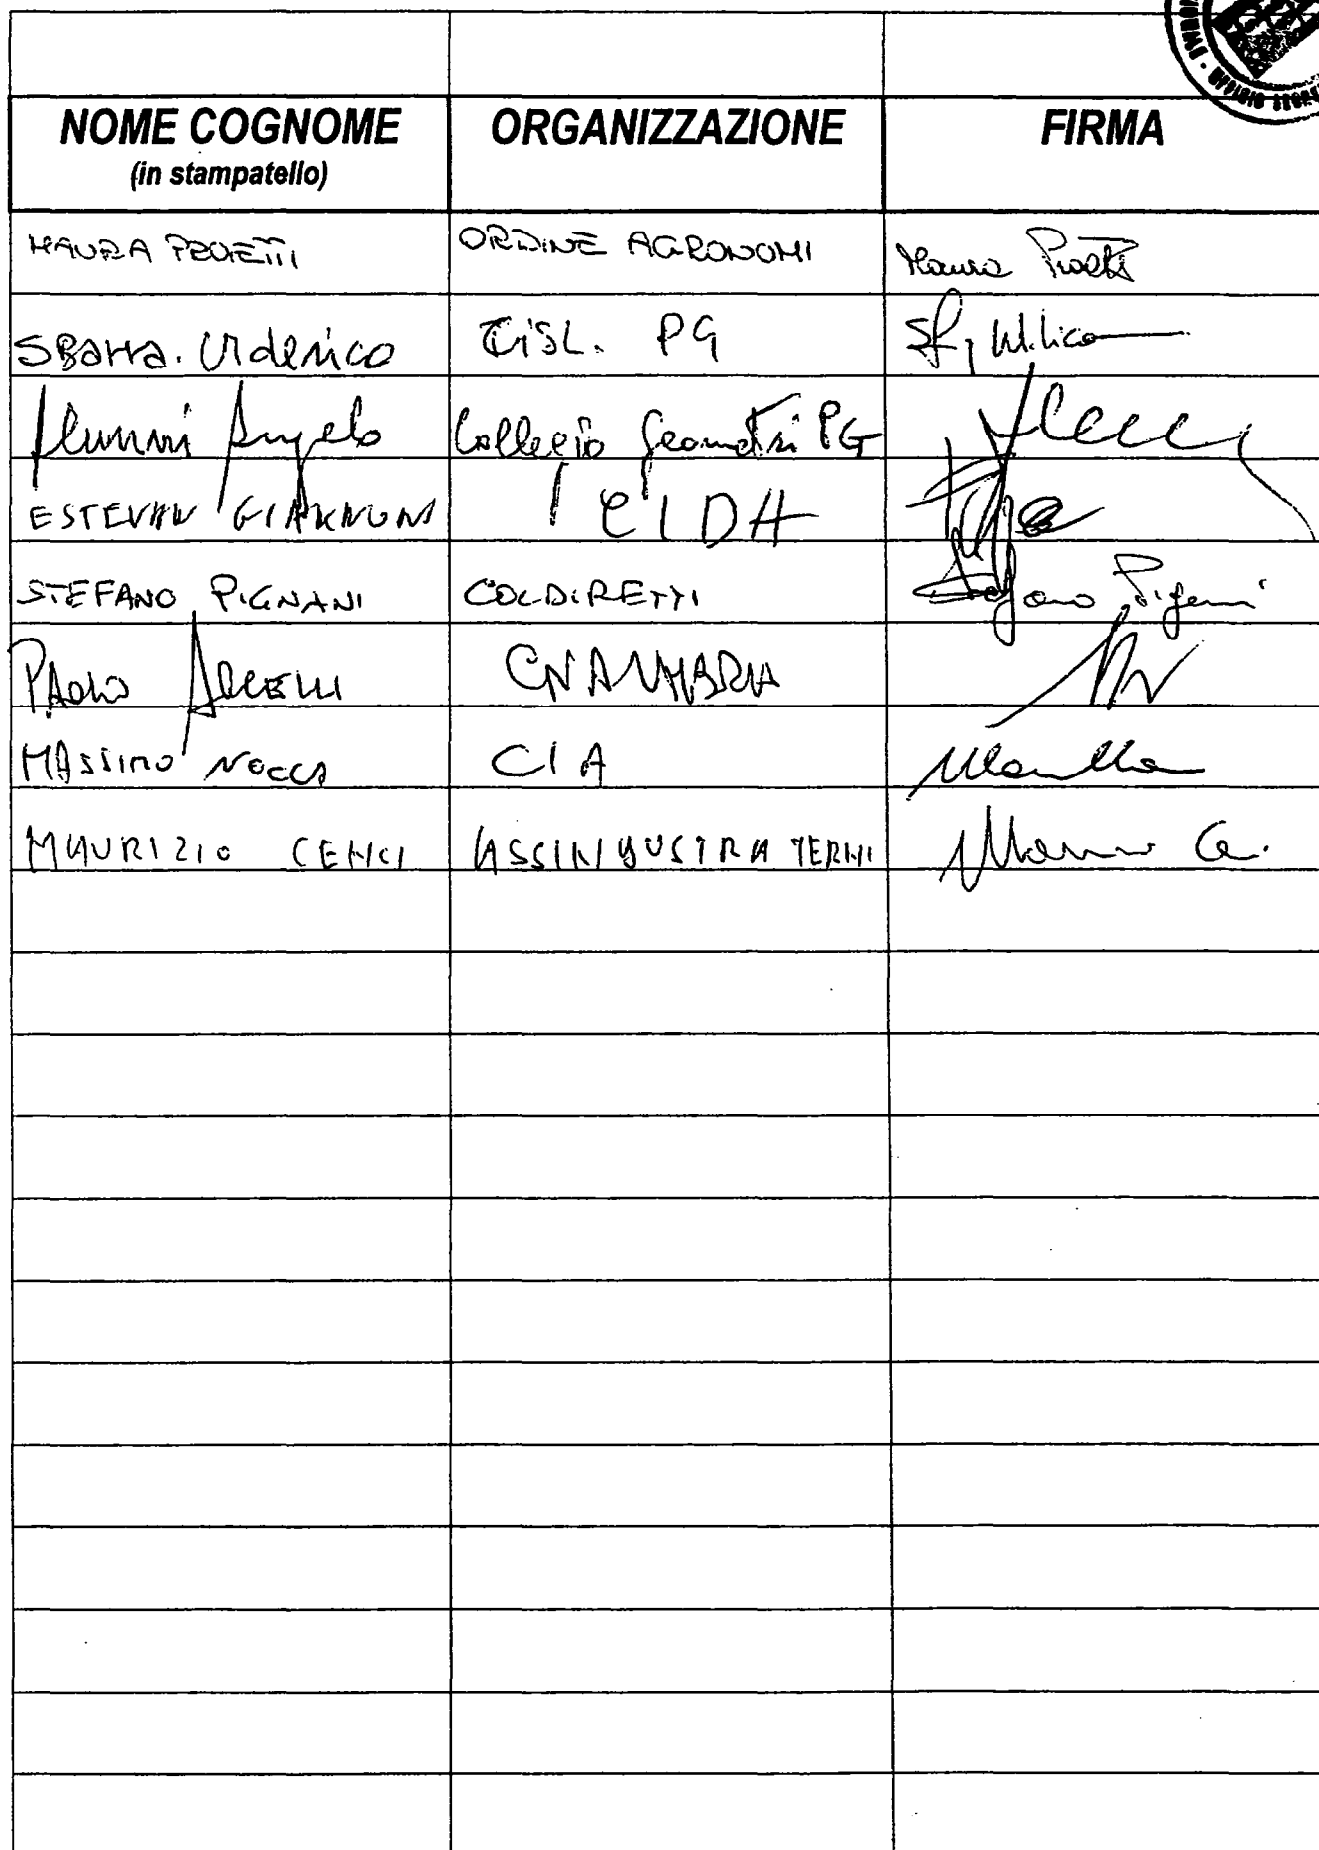 NOME COGNOME ORGANIZZAZIONE FIRMA
(in stampatello)
MAURA PROIETTI ORDINE AGRONOMI Maura
Sbarra. Uderico CISL. PG
Alunni Angelo Collegio Geometri PG
ESTEVAN GIANNONI CIDA
STEFANO PIGNANI COLDIRETTI Stefano Pignani
PAOLO ARCELLI CNA UMBRIA
MASSIMO NOCCA CIA
MAURIZIO CENCI ASSINDUSTRIA TERNI